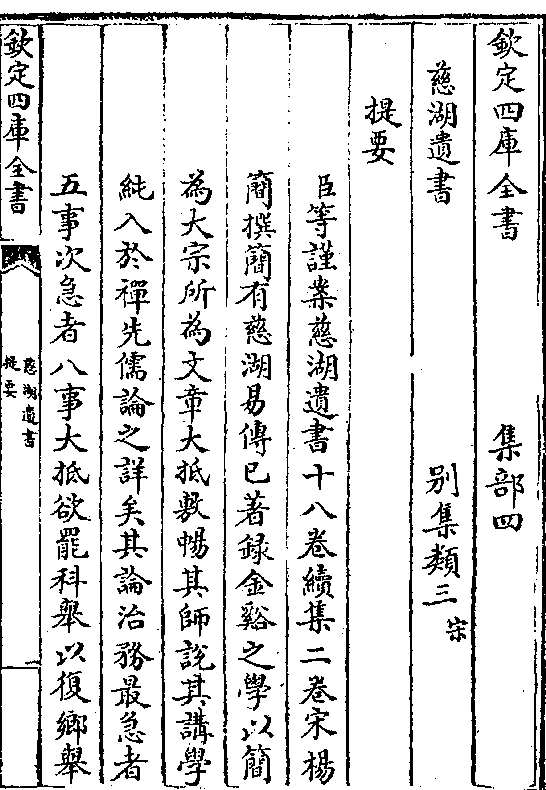 欽定四庫全書　集部四
慈湖遺書　別集類三宋
提要
臣等謹案慈湖遺書十八卷續集二卷宋楊
簡撰簡有慈湖易傳已著録金谿之學以簡
為大宗所為文章大抵敷暢其師說其講學
純入於禪先儒論之詳矣其論治務最急者
五事次急者八事大抵欲罷科舉以復鄉舉
欽定四庫全書
慈湖遺書
提要
一